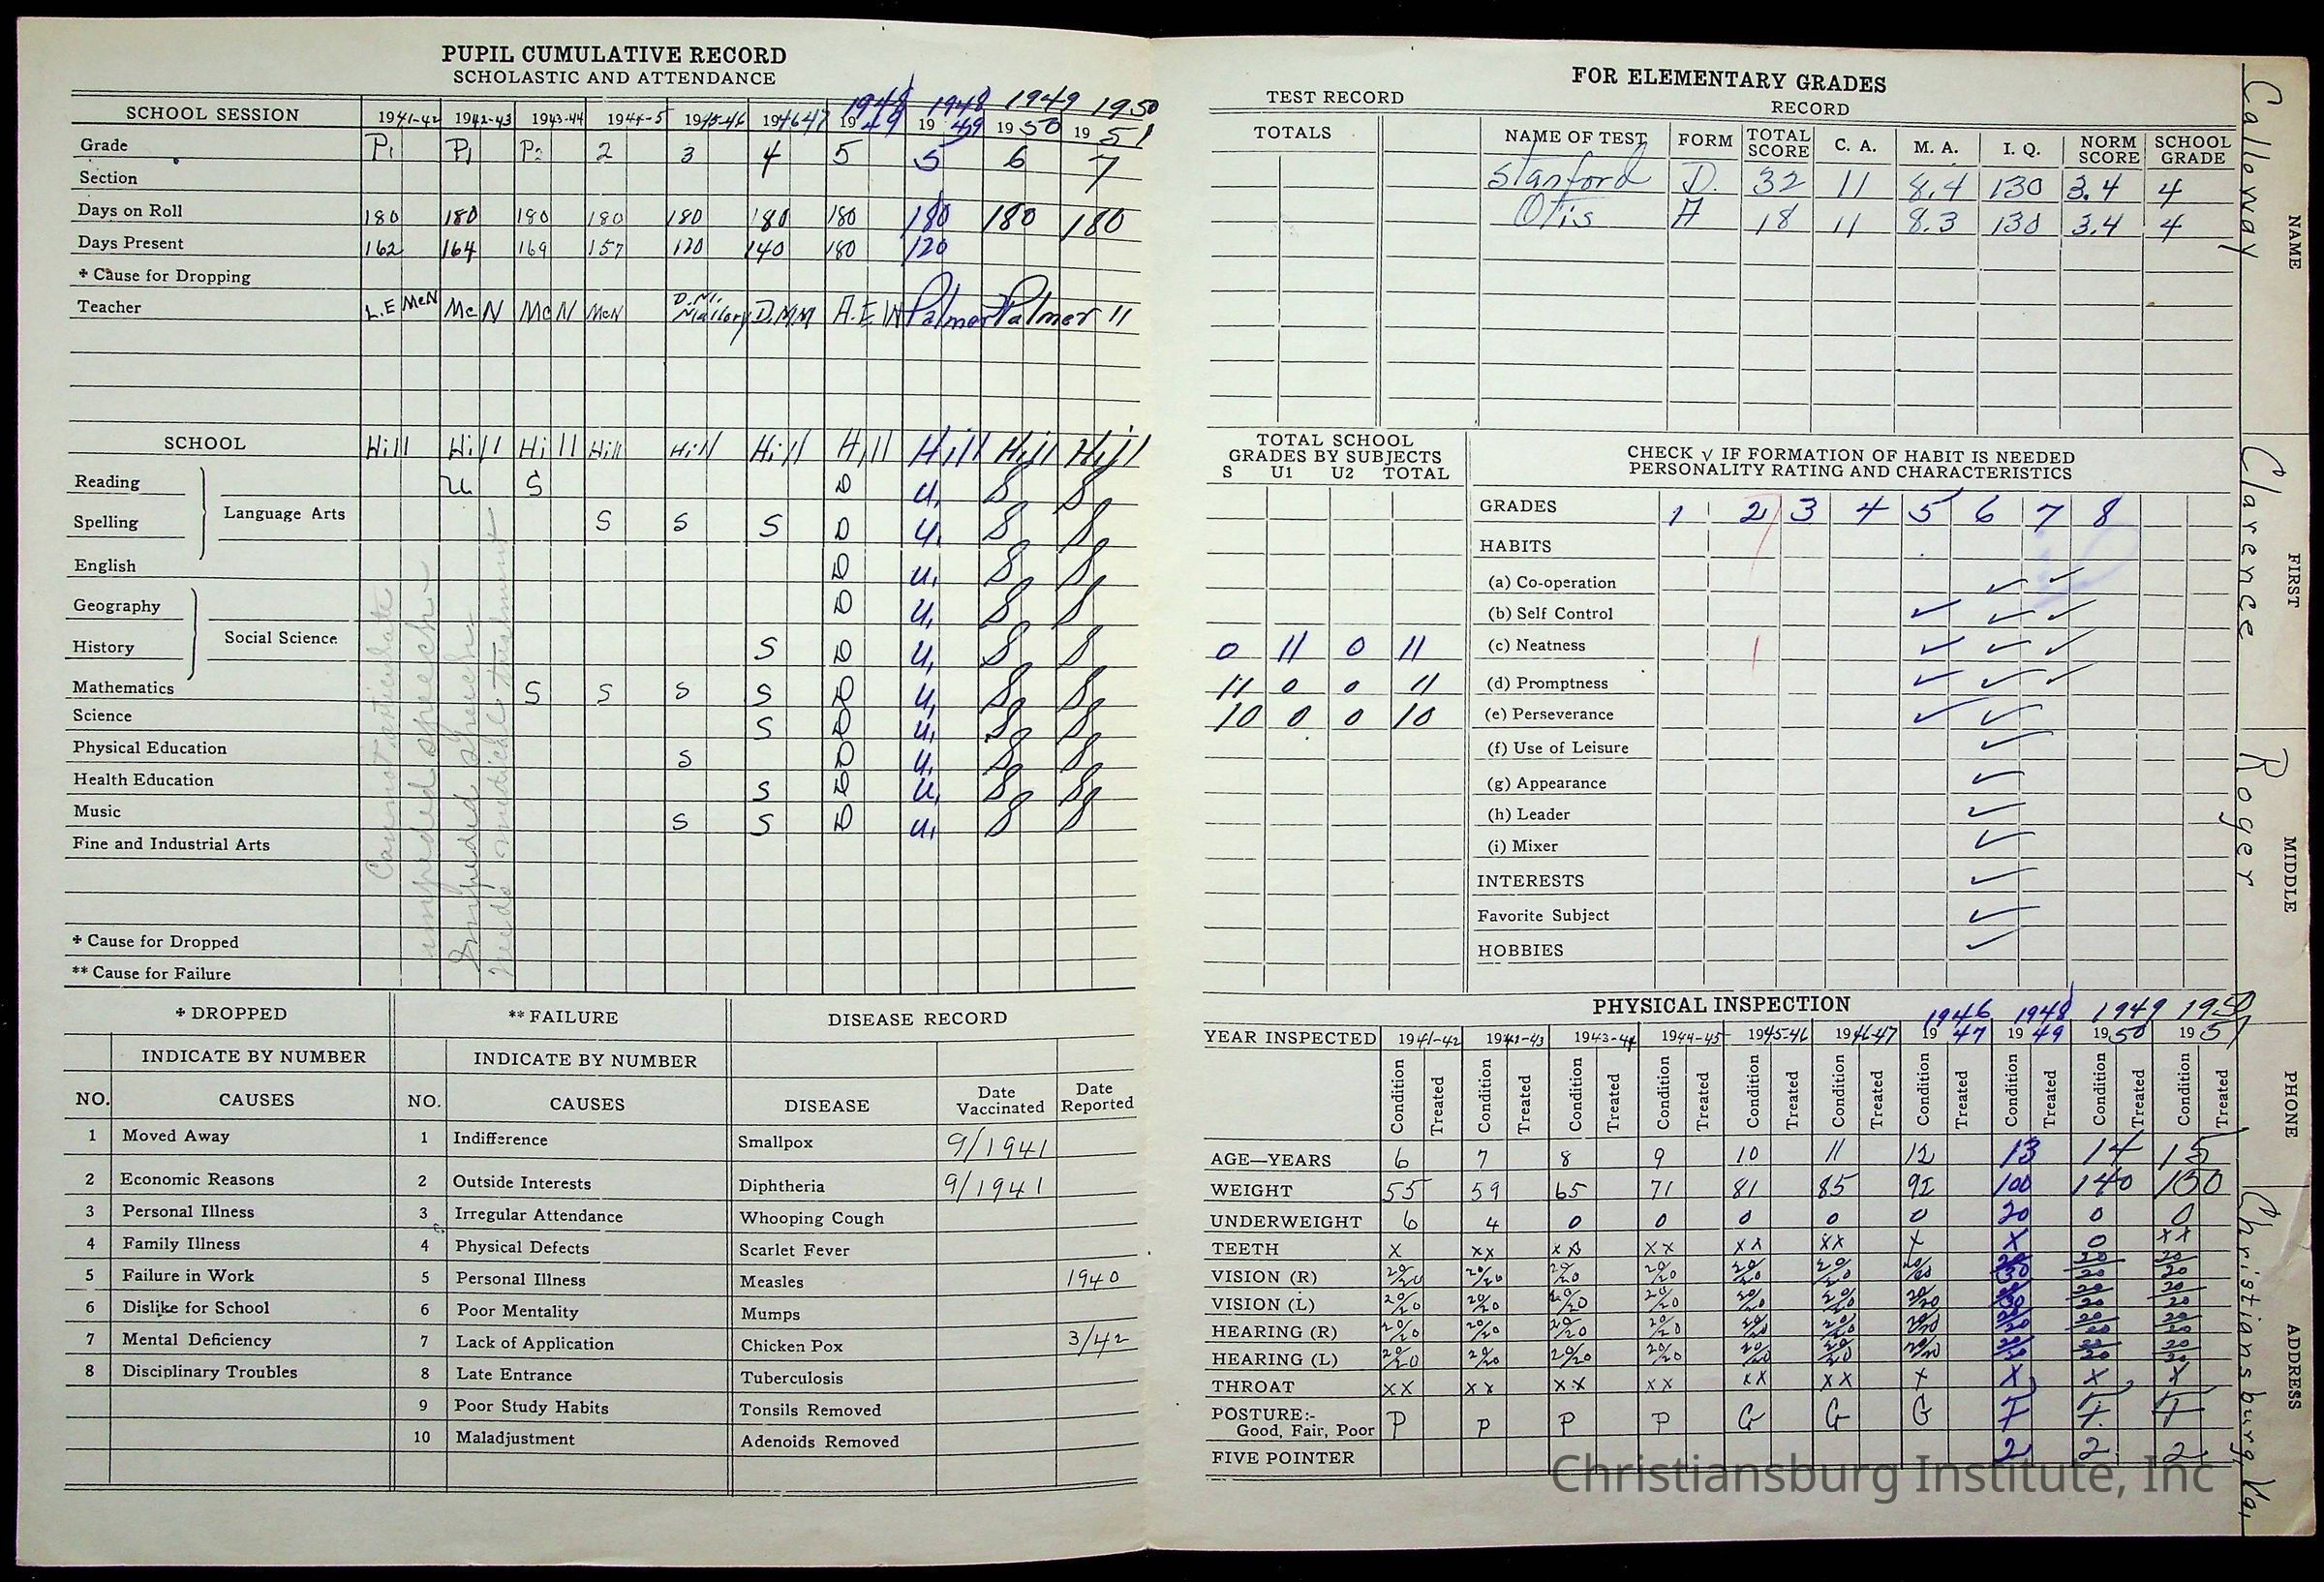 PUPIL CUMULATIVE RECORD
SCHOLASTIC AND ATTENDANCE
1948 1948 1949 1950
SCHOOL SESSION 1941-42 1942-43 1943-44 1944-5 1945-46 194647 19 49 19 49 19 50 19 51
Grade P1 P1 P2 2 3 4 5 5 6 7
Section
Days on Roll 180 180 180 180 180 180 180 180 180 180
Days Present 162 164 169 157 120 140 180 120
✢ Cause for Dropping
Teacher L.E McN McN McN McN D.M. Mallory D.MM A.E.W Palmer Palmer "
SCHOOL Hill Hill Hill Hill Hill Hill Hill Hill Hill Hill
Reading U S D U, S S
Language Arts
Spelling S S S D U, S S
English D U, S S
Geography D U, S S
Social Science
History S D U, S S
Mathematics S S S S D U, S S
Science S D U, S S
Physical Education S D U, S S
Health Education S D U, S S
Music S S D U, S S
Fine and Industrial Arts
Cannot articulate
impeded speech
Impeded speech
Needs medical treatment
✢ Cause for Dropped
** Cause for Failure
✢ DROPPED
INDICATE BY NUMBER
NO. CAUSES
1 Moved Away
2 Economic Reasons
3 Personal Illness
4 Family Illness
5 Failure in Work
6 Dislike for School
7 Mental Deficiency
8 Disciplinary Troubles
** FAILURE
INDICATE BY NUMBER
NO. CAUSES
1 Indifference
2 Outside Interests
3 Irregular Attendance
4 Physical Defects
5 Personal Illness
6 Poor Mentality
7 Lack of Application
8 Late Entrance
9 Poor Study Habits
10 Maladjustment
DISEASE RECORD
DISEASE Date Vaccinated Date Reported
Smallpox 9/1941
Diphtheria 9/1941
Whooping Cough
Scarlet Fever
Measles 1940
Mumps
Chicken Pox 3/42
Tuberculosis
Tonsils Removed
Adenoids Removed
FOR ELEMENTARY GRADES
TEST RECORD RECORD
TOTALS NAME OF TEST FORM TOTAL SCORE C. A. M. A. I. Q. NORM SCORE SCHOOL GRADE
Stanford D. 32 11 8.4 130 3.4 4
Otis A 18 11 8.3 130 3.4 4
TOTAL SCHOOL
GRADES BY SUBJECTS
S U1 U2 TOTAL
0 11 0 11
11 0 0 11
10 0 0 10
CHECK √ IF FORMATION OF HABIT IS NEEDED
PERSONALITY RATING AND CHARACTERISTICS
GRADES 1 2 3 4 5 6 7 8
HABITS
(a) Co-operation ✓ ✓
(b) Self Control ✓ ✓ ✓
(c) Neatness ✓ ✓ ✓
(d) Promptness ✓ ✓ ✓
(e) Perseverance ✓ ✓
(f) Use of Leisure ✓
(g) Appearance ✓
(h) Leader ✓
(i) Mixer ✓
INTERESTS ✓
Favorite Subject ✓
HOBBIES ✓
PHYSICAL INSPECTION
1946 1948 1949 1950
YEAR INSPECTED 1941-42 1942-43 1943-44 1944-45 1945-46 1946-47 19 47 19 49 19 50 19 51
Condition Treated Condition Treated Condition Treated Condition Treated Condition Treated Condition Treated Condition Treated Condition Treated Condition Treated Condition Treated
AGE—YEARS 6 7 8 9 10 11 12 13 14 15
WEIGHT 55 59 65 71 81 85 92 100 140 150
UNDERWEIGHT 6 4 0 0 0 0 0 20 0 0
TEETH X XX XX XX XX XX X X 0 XX
VISION (R) 20/20 20/20 20/20 20/20 20/20 20/20 20/20 20/20
VISION (L) 20/20 20/20 20/20 20/20 20/20 20/20 20/20 20/20 20/20
HEARING (R) 20/20 20/20 20/20 20/20 20/20 20/20 20/20 20/20 20/20 20/20
HEARING (L) 20/20 20/20 20/20 20/20 20/20 20/20 20/20 20/20 20/20 20/20
THROAT XX XX XX XX XX XX X X X X
POSTURE:-
Good, Fair, Poor P P P P G G G F F F
FIVE POINTER 2 2 2
NAME Calloway
FIRST Clarence
MIDDLE Roger
PHONE
ADDRESS Christiansburg, Va,
Christiansburg Institute, Inc